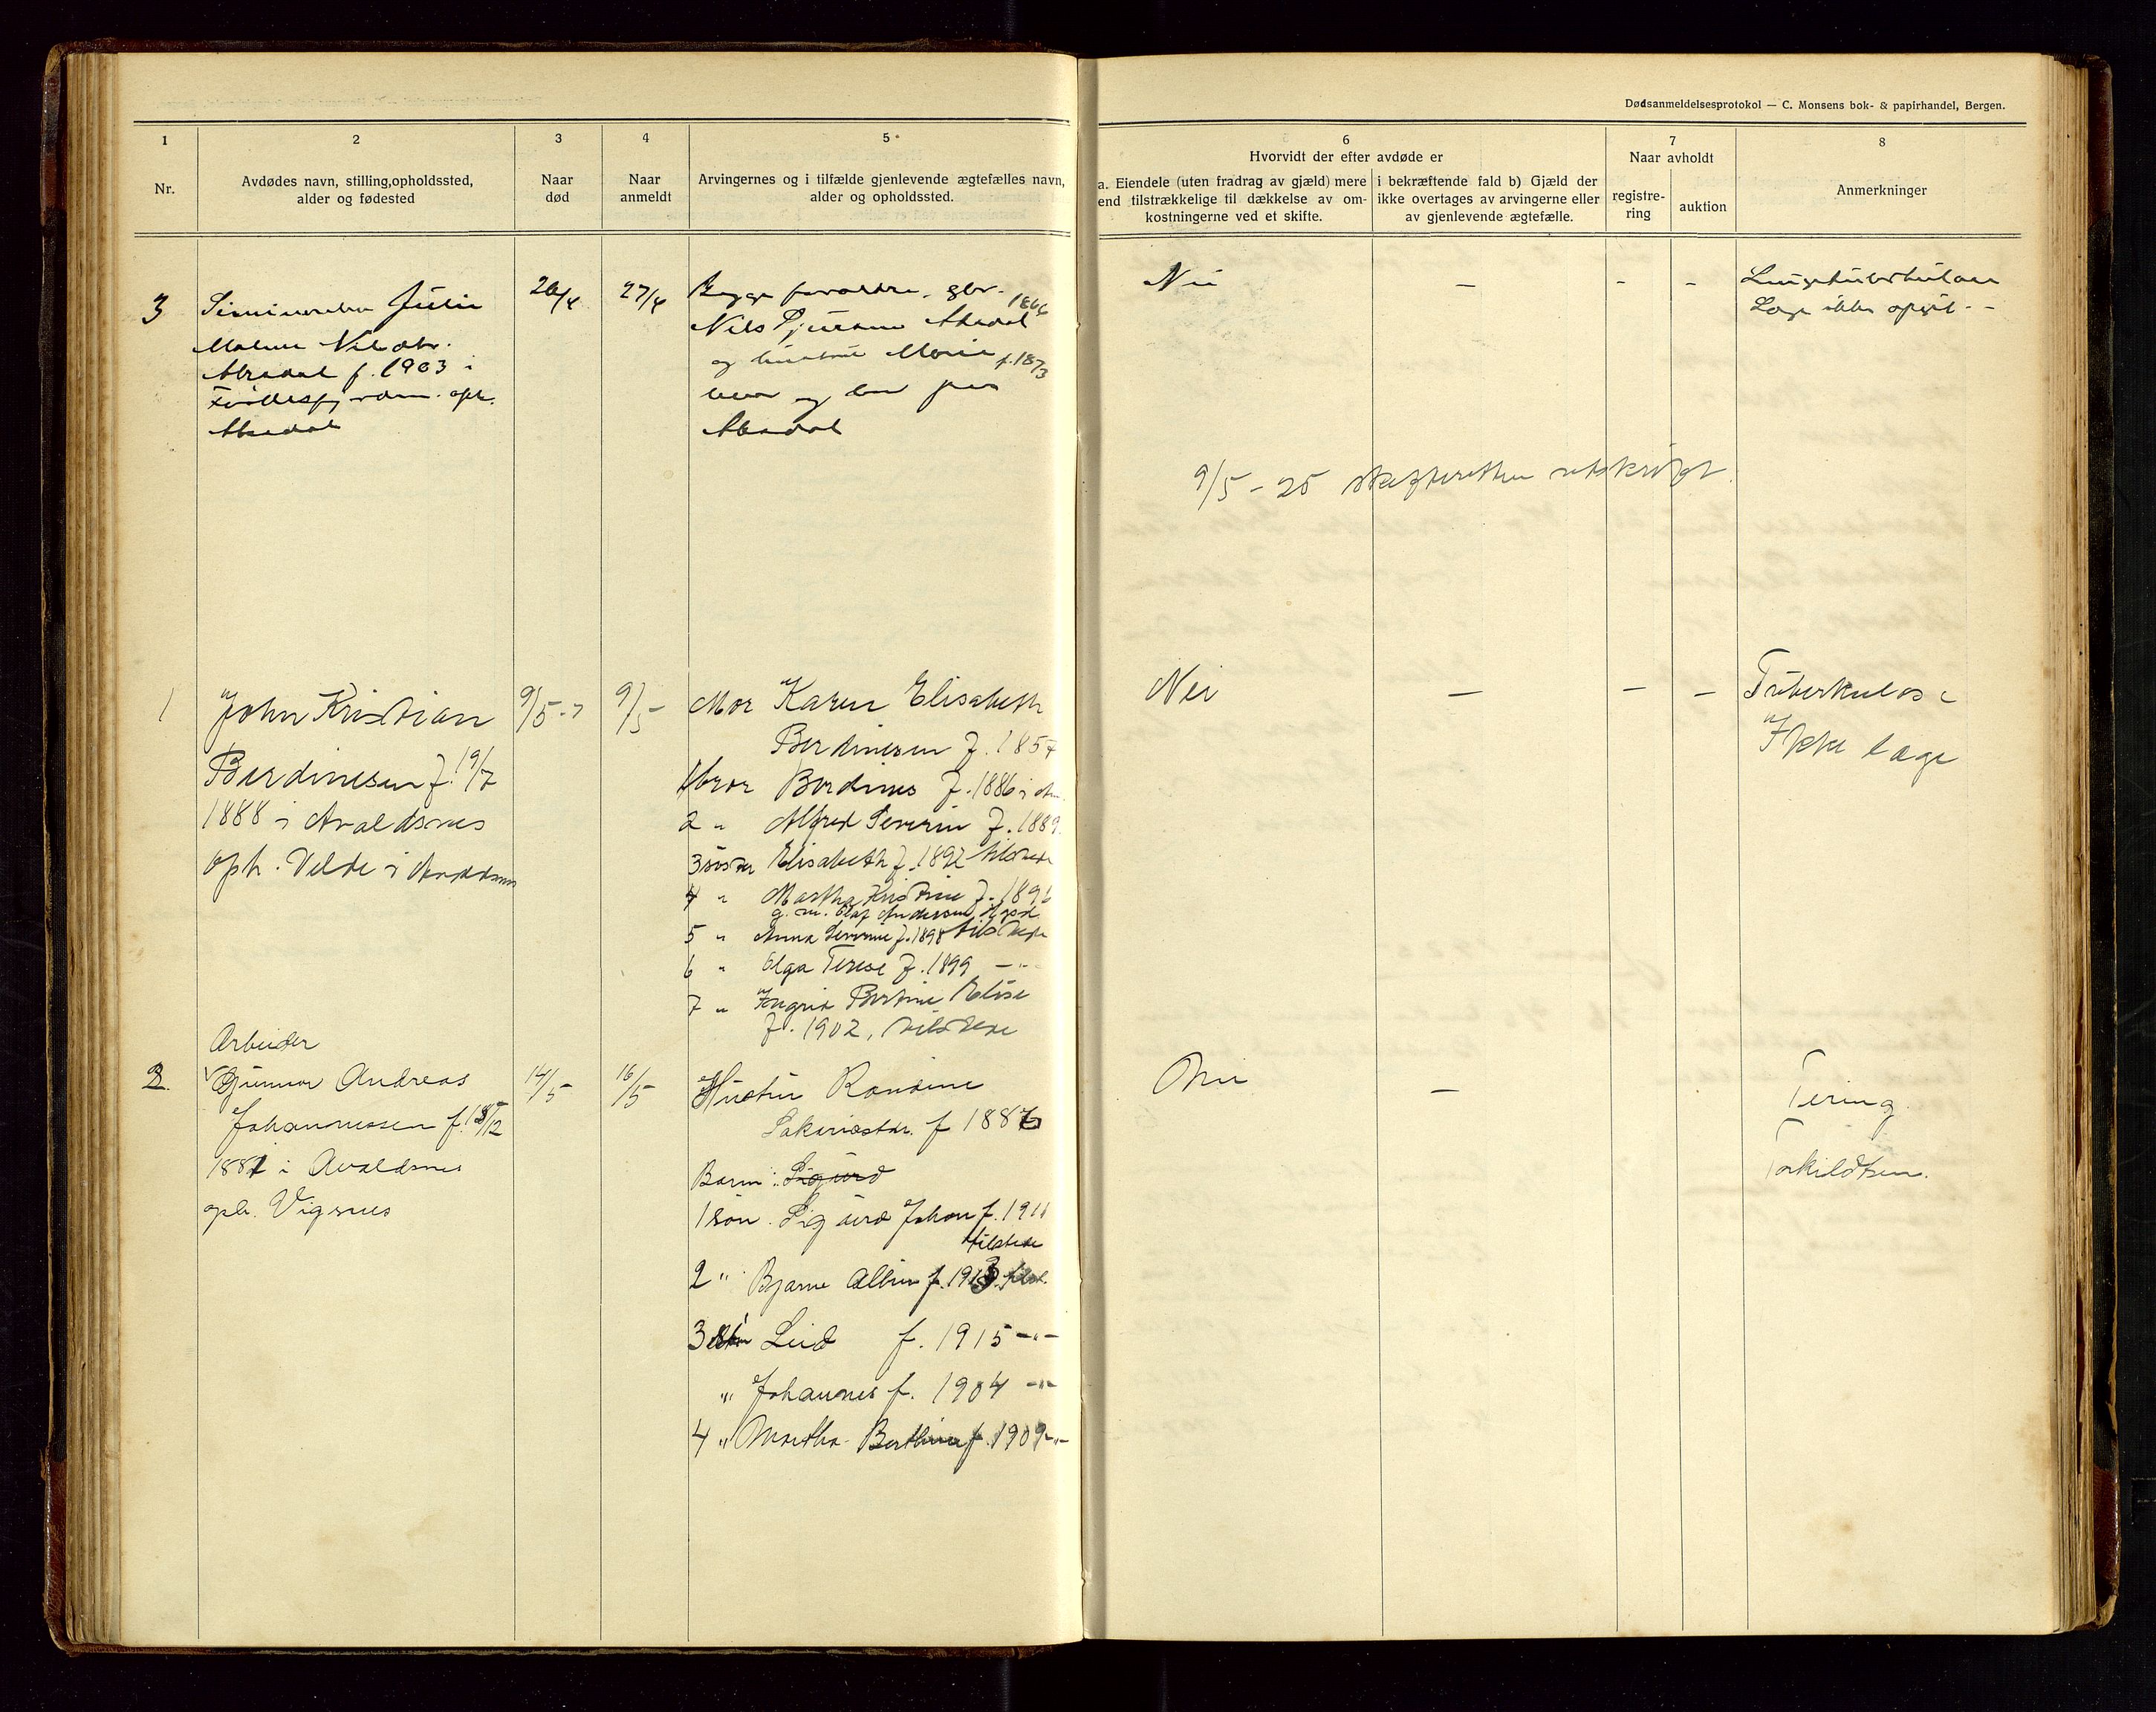 Dødsanmeldelsesprotokol — C. Monsens bok- & papirhandel, Bergen.
1
Nr.
2
Avdødes navn, stilling,opholdssted,
alder og fødested
3
Naar
død
4
Naar
anmeldt
5
Arvingernes og i tilfælde gjenlevende ægtefælles navn,
alder og opholdssted.
6
Hvorvidt der efter avdøde er
a. Eiendele (uten fradrag av gjæld) mere
end tilstrækkelige til dækkelse av om-
kostningerne ved et skifte.
i bekræftende fald b) Gjæld der
ikke overtages av arvingerne eller
av gjenlevende ægtefælle.
7
Naar avholdt
registre-
ring
auktion
8
Anmerkninger
3
Julie
Malene
f. 1903 i
oph.
26/4
27/4
Begge forældre, gbr.
Nils 1866
og hustru Marie f. 1873
Nei
—
-
-
Læge ikke
9/5-25 skifteretten utskrift.
1
John Kristian
Berdinesen f. 19/7
1888 i Avaldsnes
oph. Velde i Avaldsnes
9/5
9/5
Mor Karen Elisabeth
Berdinesen f. 1857
1 bror Berdines f. 1886 i
2 " Alfred Severin f. 1889
3 søster Elisabeth f. 1892 tilstede
4 " Martha Kristine f.
g. m. Olaf Andersen
5 " Anna Severine f. 1898 tilstede
6 " Olga Terese f. 1899 —"—
7 " Ingrid Bertine Elise
f. 1902, tilstede
Nei
—
—
—
Tuberkulose
Ikke læge
2.
Arbeider
Gunnar Andreas
Johannessen f. 18/12
1881 i Avaldsnes
oph. Vigsnes
14/5
16/5
Hustru Randine
Sakariasdtr. f 1886
Barn: Sigurd
1 søn. Sigurd Johan f. 1911
tilstede
2 " Bjarne Albin f. 1913 tilst.
3 Leid f. 1915 —"—
" Johannes f. 1904 —"—
4 " Martha Berthine f. 1909 —"—
Nei
—
Tering.
Torkildsen.